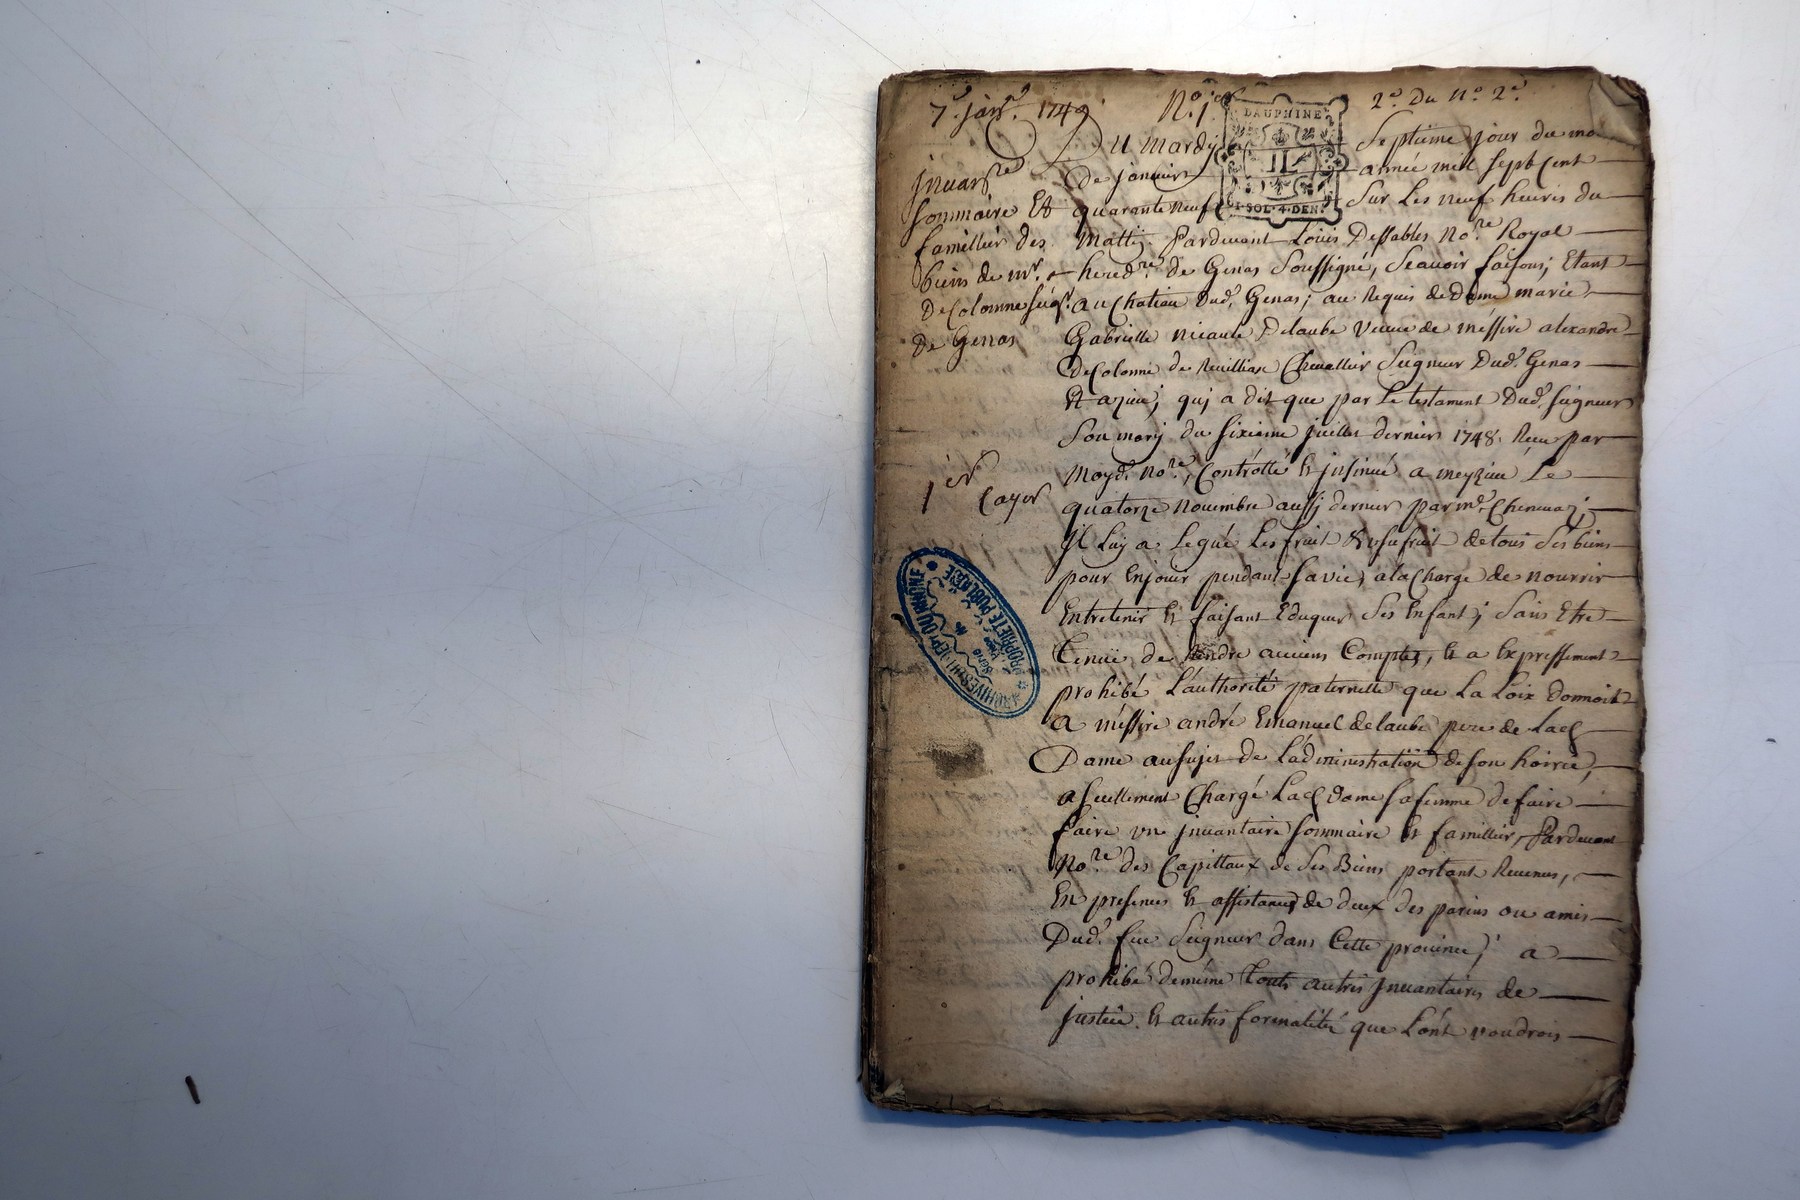 7.e janv.r 1749
N.o 1.er
2.e Du N.o 2.e
DAUPHINE
IL
1·SOL·4·DEN.
jnuan.re
sommaire Et
familliér des
biens de m.r
De Colonne seig.r
De Genas
1.er Cayer
Du Mardy Septieme jour du mo
De janvier année mil sept Cent
quarante neuf Sur Les neuf heures du
Mattij. Pardeuant Louis Dessables No.re Royal
hered.re de Genas Soussigné, Scauoir faisons; Etant
au Chateau Dud. Genas; au Requis de Dame marie
Gabrielle nicaule Delaube Veuue de méssire alexandre
De Colonne de Chevallier Seigneur Dud. Genas
Et azieu; quj a dit que par Le testament Dud. seigneur
Son marij du sixieme juillet dernier 1748. Receu par
Moyd. No.re, Contrôllé Et jnsinué a meyzieu Le
quatorze nouembre aussj dernier par m.e
Il Luy a Legué Les fruit & usufruit de tous Ses biens
pour Enjouir pendant sa vie, a la Charge de nourrir
Entretenir Et faisant Eduquer Ses Enfant; Sans Etre
tenüe de Rendre aucuns Comptes, Et a Expressement
prohibé L'authorité paternelle que La Loix donnoit
a méssire andré Emanuel delaube pere de Lad.
Dame au sujet de L'administration de son hoirie,
a seullement Chargé Lad. dame sa femme de faire
faire vn jnuantaire sommaire Et famillier, Pardeuant
No.re des Capittaux de Ses Biens portant Reuenus,
En presence Et assistance de deux des parens ou amis
Dud. feu Seigneur dans Cette prouince; a
prohibé de même touts autres jnuantaires de
justice. Et autres formalités que L'ont voudrois
ARCHIVES DU DEP.T DU RHONE
PROPRIETE PUBLIQUE